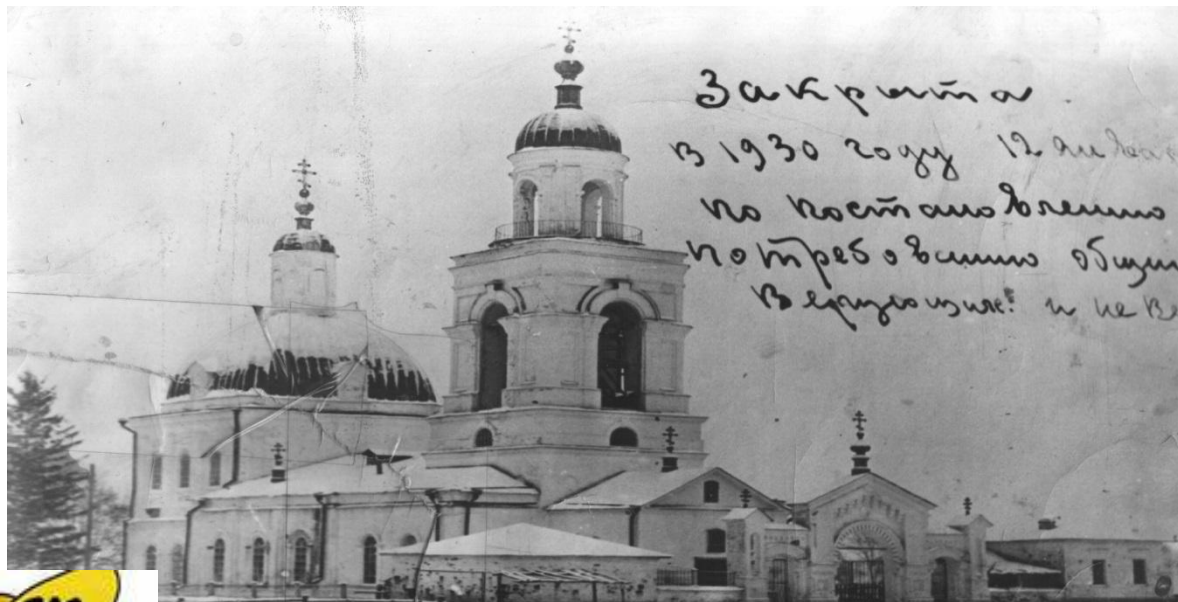 Закрыта
в 1930 году 12
по постановлению
по требованию
верующих и не